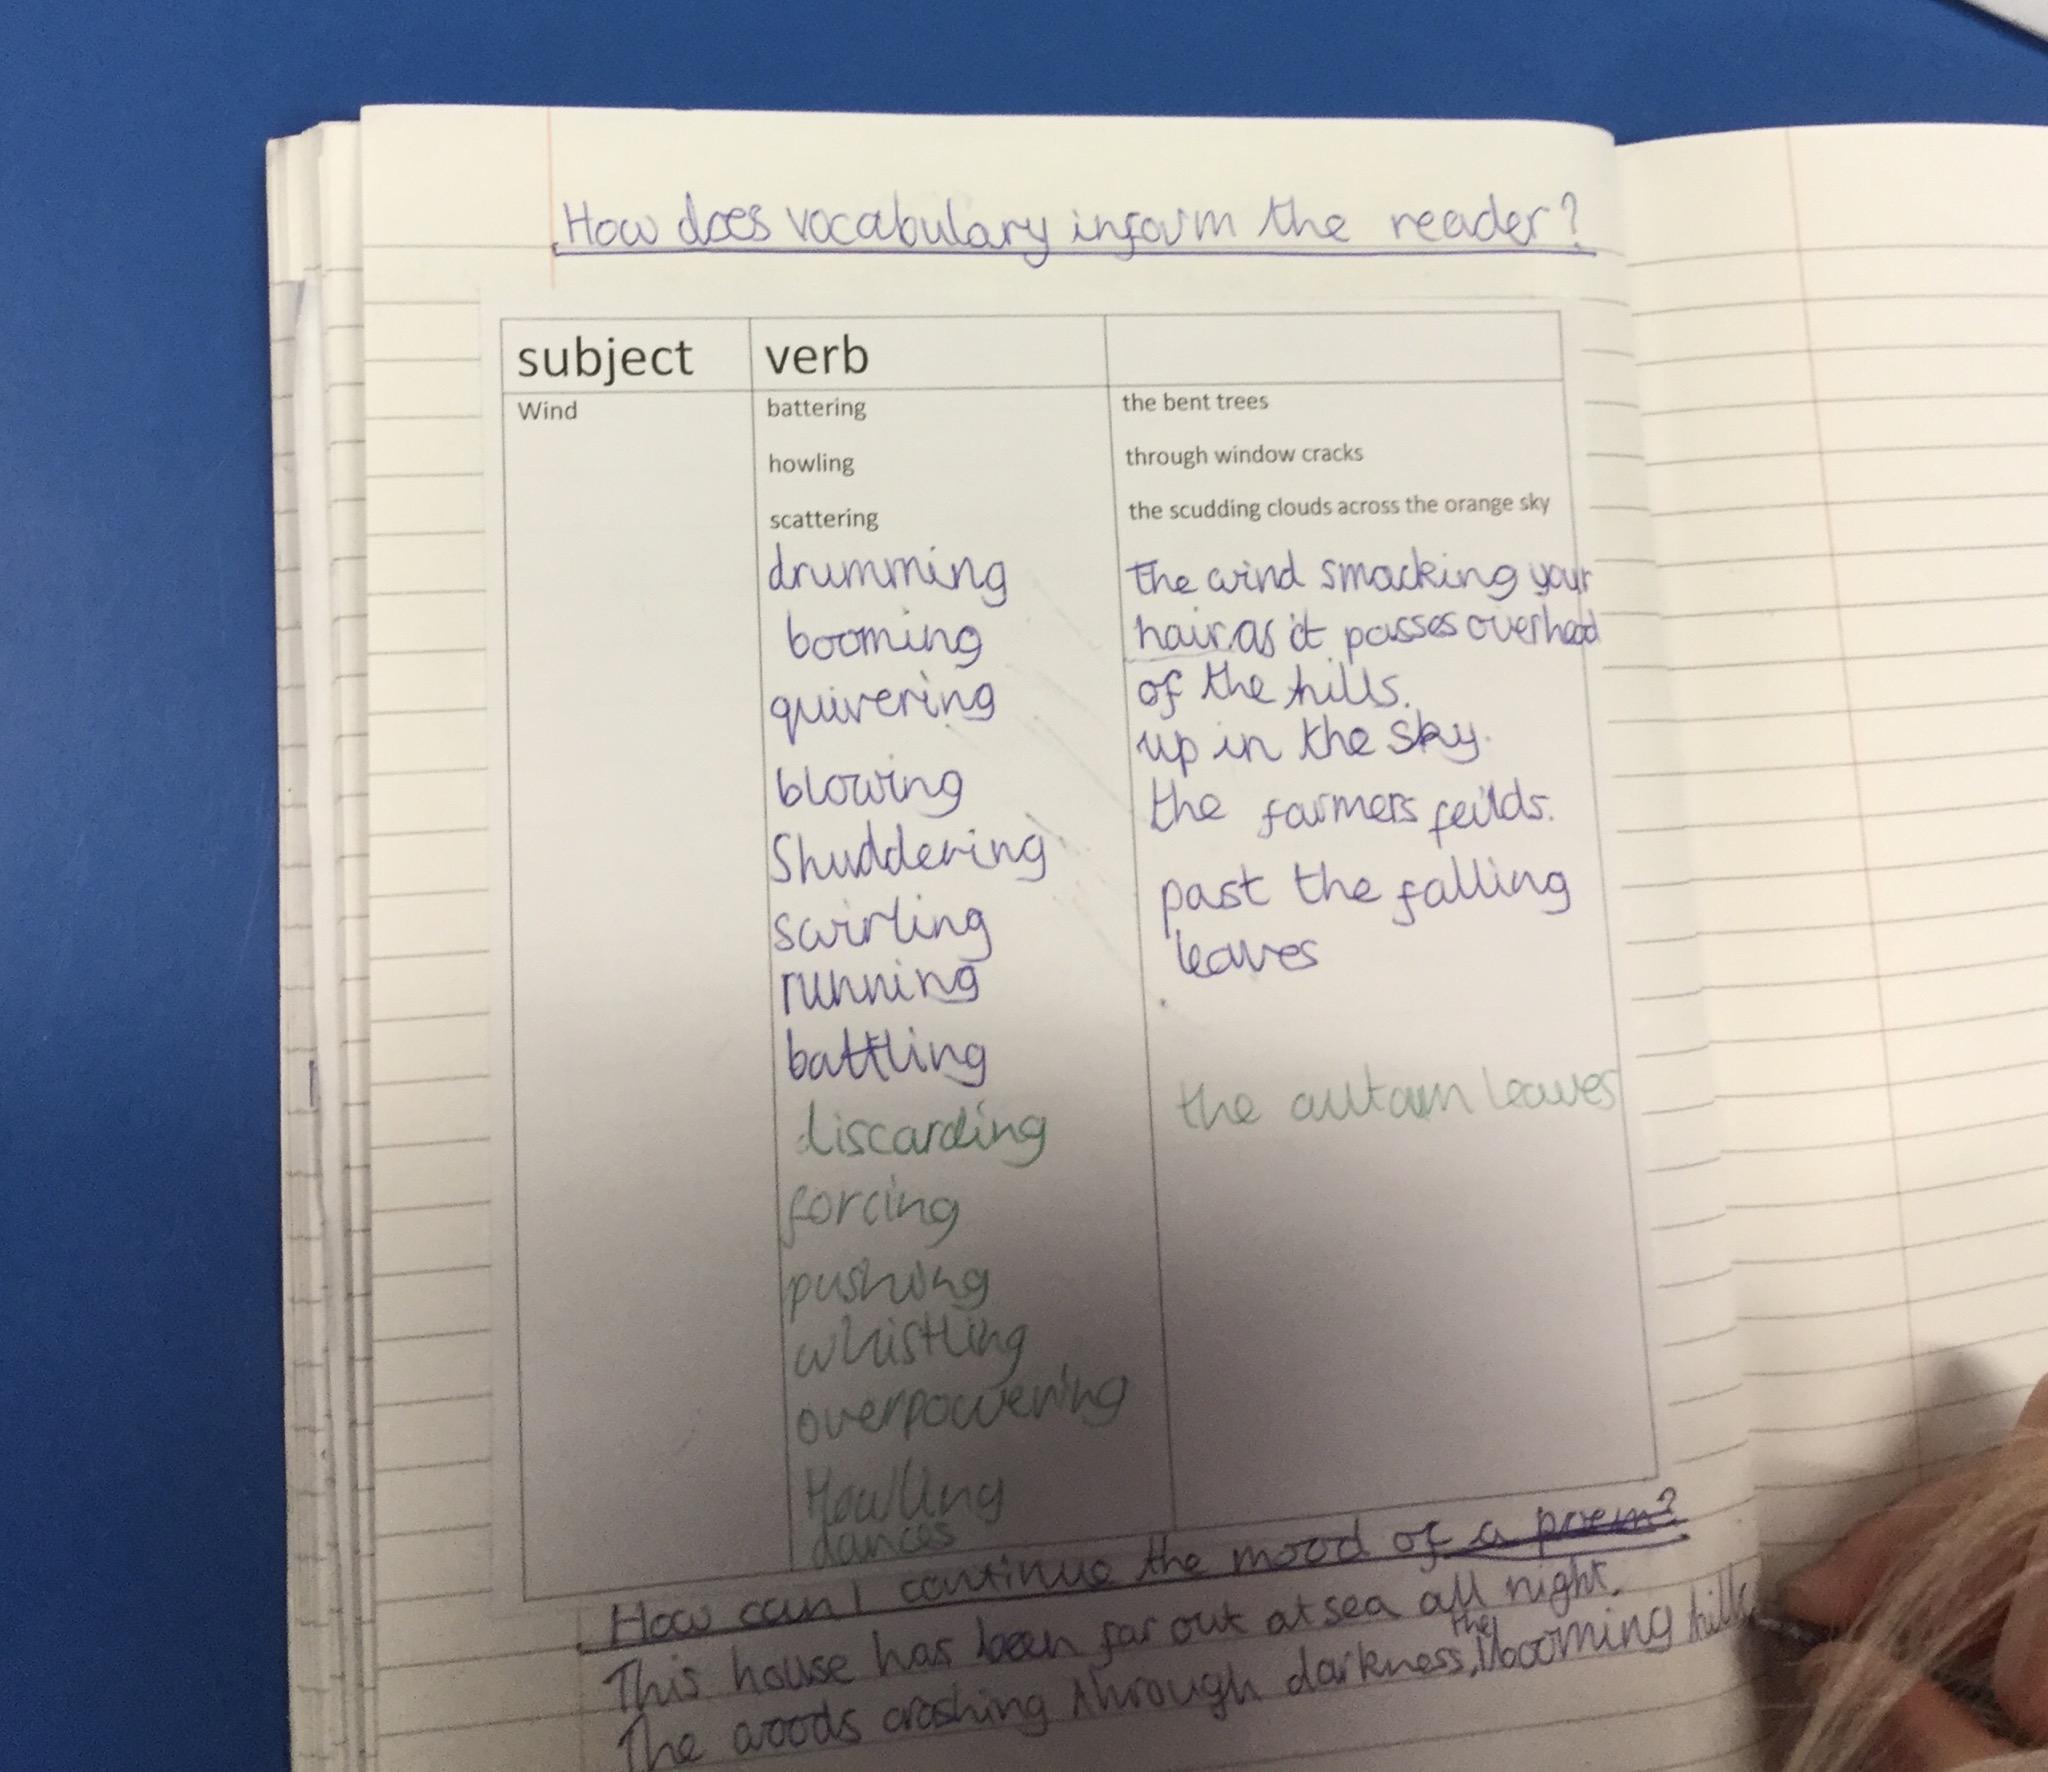 How does vocabulary inform the reader?
subject verb
Wind battering the bent trees
howling through window cracks
scattering the scudding clouds across the orange sky
drumming the wind smacking your
booming hair as it passes overhead
quivering of the hills.
up in the sky.
blowing the farmers feilds.
Shuddering past the falling
swirling leaves
running
battling
discarding the autamn leaves
forcing
pushing
whistling
overpowering
Howling
dances
How can I continue the mood of a poem?
This house has been far out at sea all night.
The woods crashing through darkness, the booming hills